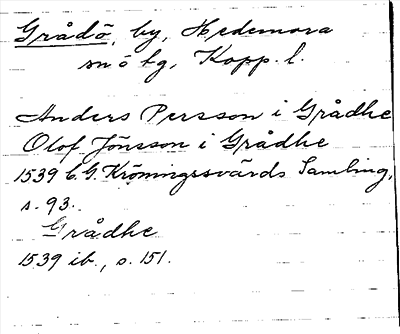 Grådö, by, Hedemora
sn o tg, Kopp. l.
Anders Persson i Grådhe
Olof Jönsson i Grådhe
1539 C.G. Kröningssvärds Samling,
s. 93.
Grådhe
1539 ib., s. 151.